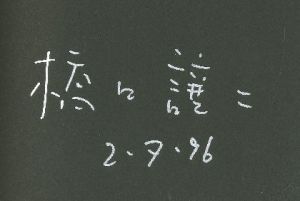 橋口譲二
2.7.96